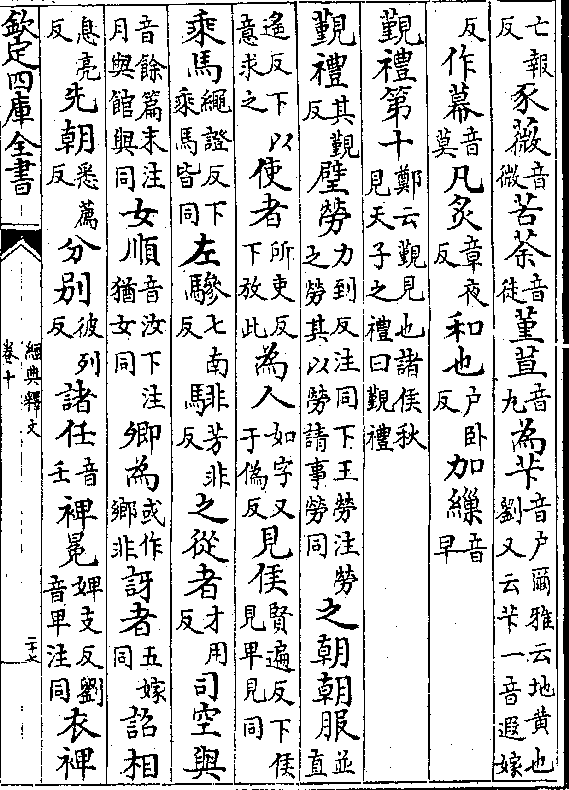 亡報反豕薇音微苦荼音徒堇荁音九為芐音户爾雅云地黄也劉又云芐一音遐嫁
反作幕音莫凡炙章夜反和也户卧反加繅音早
覲禮第十鄭云覲見也諸侯秋見天子之禮曰覲禮
覲禮其覲反璧勞力到反注同下王勞注勞之勞其以勞請事勞同之朝朝服並直
遥反下以意求之使者所吏反下放此為人如字又于偽反見侯賢遍反下侯見卑見同
乘馬繩證反下乘馬皆同左驂七南反騑芳非反之從者才用反司空與
音餘篇末注月與館與同女順音汝下注猶女同卿為或作鄉非訝者五嫁同詔相
息亮反先朝悉薦反分别彼列反諸任音壬裨冕婢支反劉音卑注同衣裨
欽定四庫全書
經典釋文
卷十
二十七